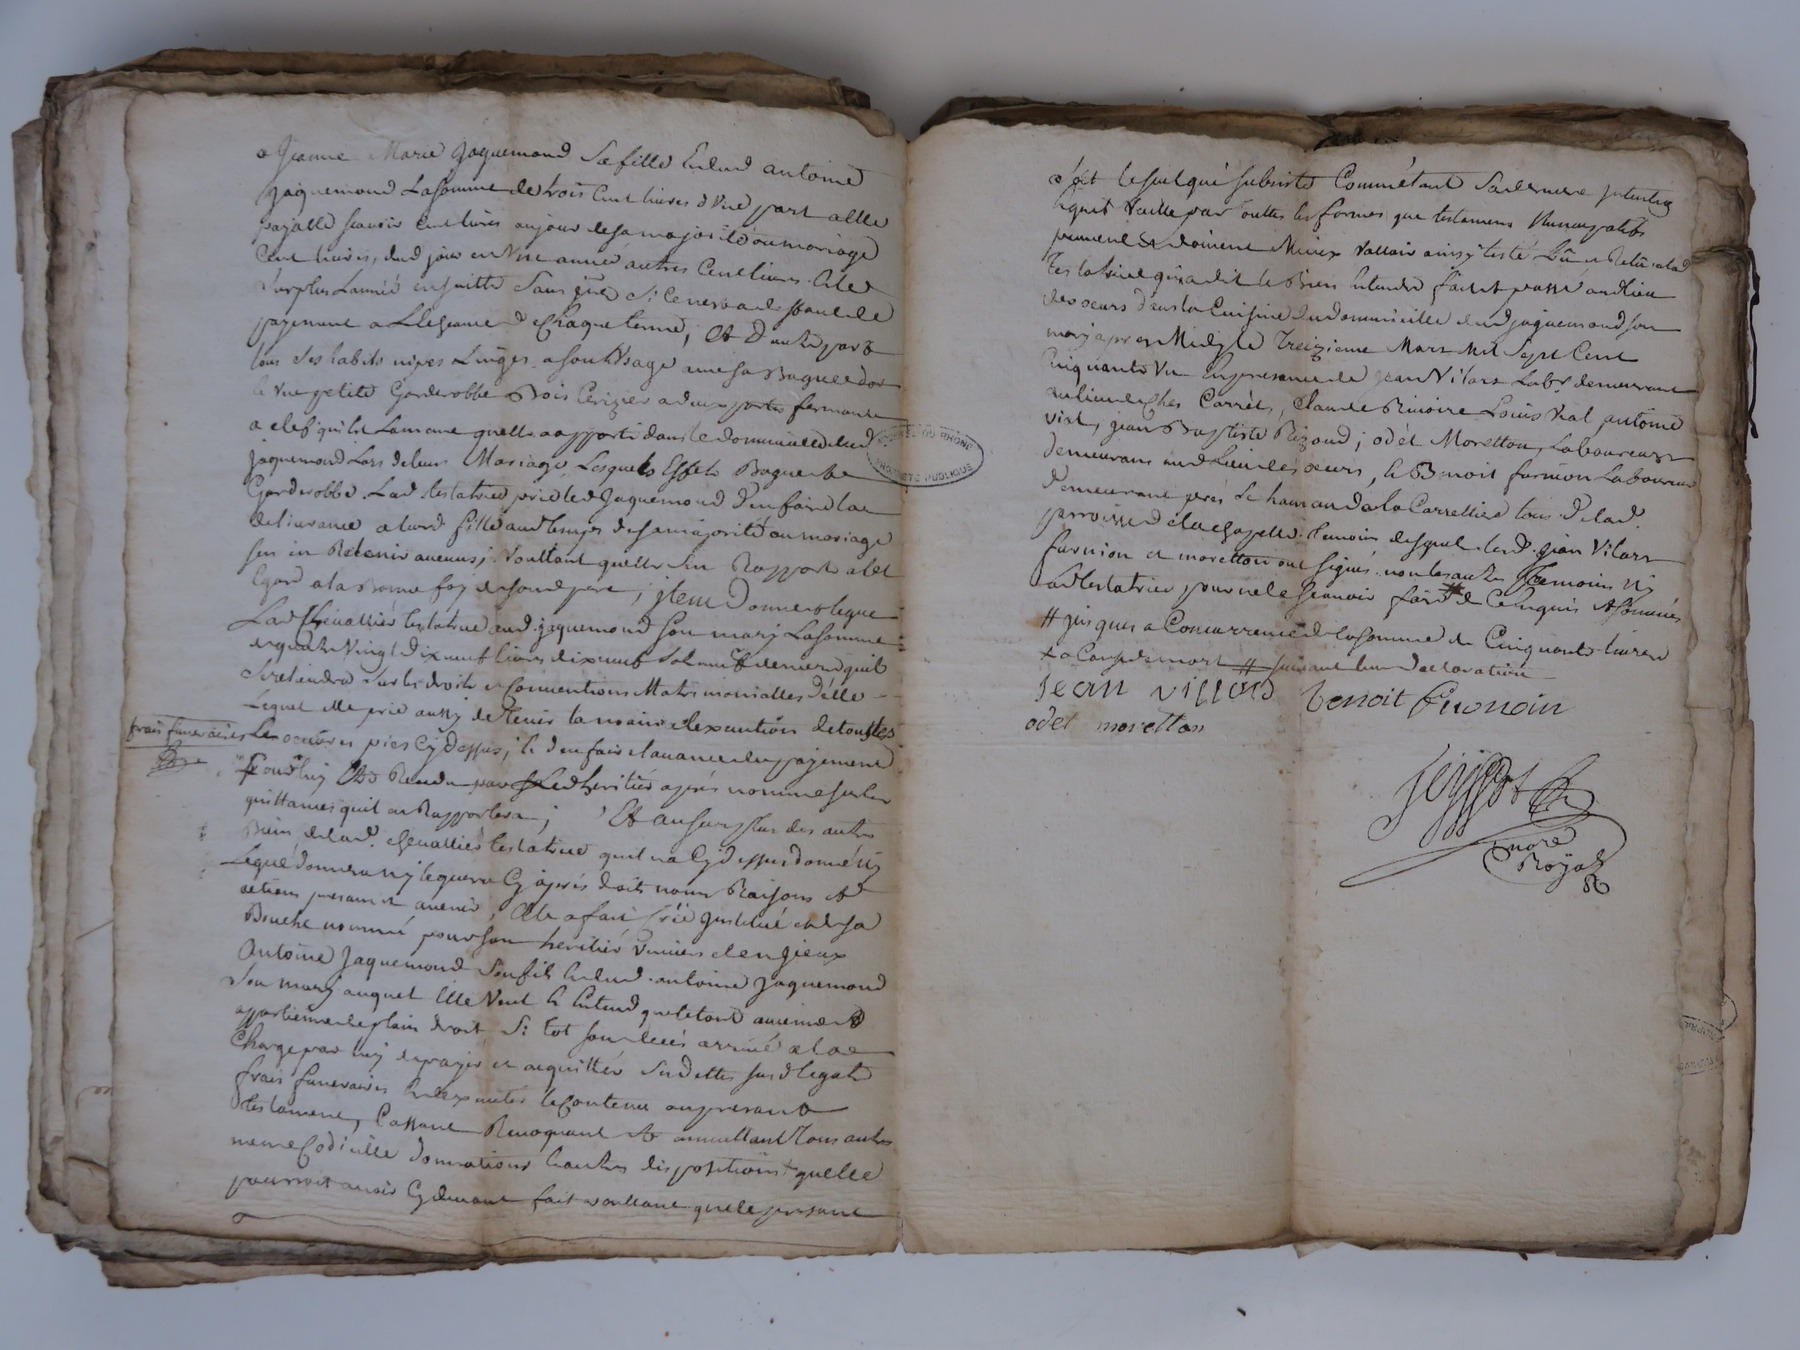 a Jeanne Marie Jaquemond Sa fille Et dud antoine
Jaquemond La somme de trois Cent livres d'Une part a Elle
payable scavoir Cent livres au jour de sa majorité ou mariage
Cent livres, dud jour en Une année autres Cent livres Et le
Surplus L'année ensuitte Sans jnts Si ce n'est a deffaut de
payement a L'Echeance de chaque terme, Et D'autre part
tous Ses habits nipes Linges a son Usage avec sa Bague d'or
Et Une petite Garderobbe Bois Cerizier a deux portes fermante
a clef qu'ils Lamene quelle a apporté dans le domicille dud
Jaquemond Lors de leur Mariage, Lesquels Effets Bague Et
Garderobbe Lad testatrice prie led Jaquemond D'en faire la
delivrance a lad fille aud temps de sa majorité ou mariage
sen in Retenir aucuns; voullant quelle s'en Rapporte a cet
Egard a la Bonne foy de sond pere; jtem Donne et legue
Lad Chevallier testatrice aud jaquemond son mary La somme
de quatre Vingt dix neuf livres dix neuf sols neuf deniers quil
Se retiendra sur les droits et Conventions Matrimonialles d'elle
Lequel elle prie aussy de tenir la main a l'execution de touttes
frais funeraires Les oeuvres pies Cy dessus; Et d'en faire l'avance du payement
Pour luy Etre Rendu par Led heritier après nommé sur les
quittances quil en Rapportera; Et au surplus des autres
Biens de lad. chevallier testatrice quil n'a Cy dessus donné ny
Legué donnera ny leguera Cy après droits noms Raisons Et
actions presants et avenir, Elle a fait Créé Institué et de sa
Bouche nommé pour son heritier Universel en Jceux
Antoine Jaquemond Son fils Et dud antoine Jaquemond
Son mary auquel Elle Veut Et Entend que le tout avienne Et
appartienne de plain droit Si tot son deces arrivé a la
Charge par luy de payer et acquitter Ses dettes susd legats
frais funeraires Et Executer le Contenu au present
testament, Cassant Revoquant Et annullant Tous autres
meme Codicille Donnations Et autres dispositions quelle
pourroit avoir Cy devant fait voullant que le present
soit le seul qui subsiste Comme étant Sa derniere Intention
lequel Vaille par touttes les formes que testamens Nuncupatifs
peuvent Et doivent Mieux Valloir ainsy testé Lû et Relû a lad
Testatrice qui a dit le Bien Entendre fait et passé aud lieu
des oeurs dans la Cuisine du domicille dud jaquemond son
mary apres Midy le Treizieme Mars Mil Sept Cent
Cinquante Un En presence de Jean Vilars Labr demeurant
au lieu de Chez Carrét, Claude Rivoire Louis Vial antoine
vial, jean Baptiste Rizand; odét Moretton, Laboureurs
demeurans aud Lieu des oeurs, Et Benoit furnion Laboureur
demeurant près Le hameau de la Carrettiere tous de lad.
parroisse de la Chapelle temoins desquels led. jean Vilars
furnion et moretton ont signés non les autres temoins Ny
lad testatrice pour ne le scavoir faire de Ce Enquis Et Sommés
# jusques a Concurrence de la somme de Cinquante livres
a Cause de mort # suivant leur declaration
Jean villard benoit furnoin
odet moretton
nore
Royal